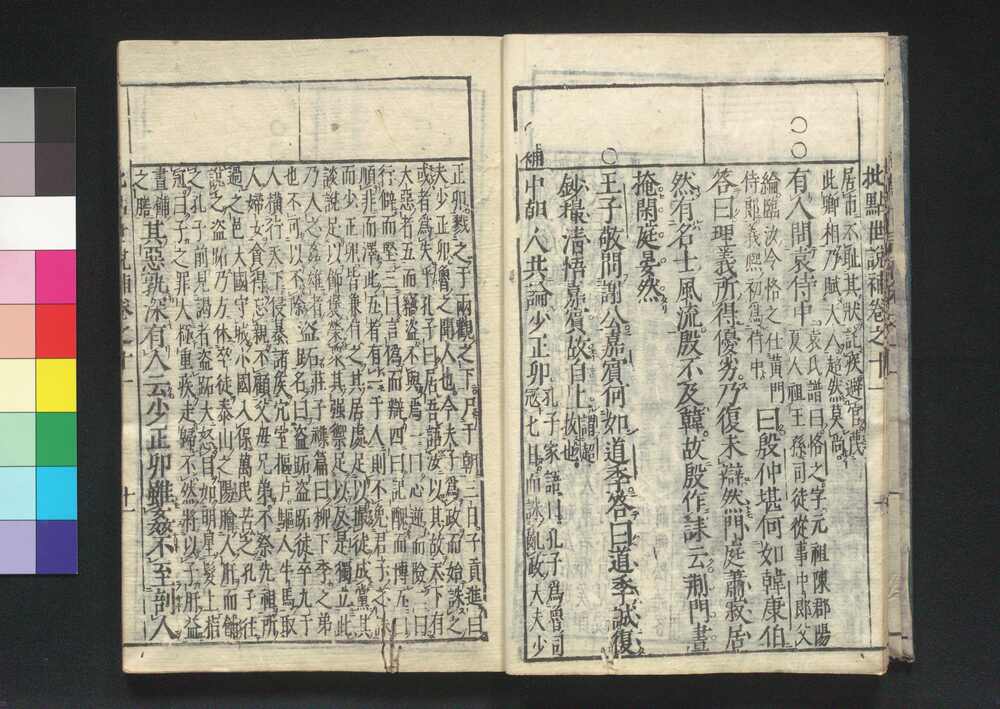 批點世說補卷之十一
居市不恥其狀託疾避官蔑
此卿相乃賦大人超然莫尚
有人問袁侍中
袁氏譜曰恪之字元祖陳郡陽
夏人祖王孫司徒從事中郎父
綸臨汝令恪之仕黃門
侍郎義熙初為侍中
曰殷仲堪何如韓康伯
答曰理義所得優劣乃復未辯然門庭蕭寂居
然有名士風流殷不及韓故殷作誄云荊門晝
掩閑庭晏然
王子敬問謝公嘉賓何如道季答曰道季誠復
鈔撮清悟嘉賓故自上
謂超
拔也
補
中朝人共論少正卯
孔子家語曰孔子為魯司
寇七日而誅亂政大夫少
正卯戮之于兩觀之下尸于朝三日子貢進曰
夫少正卯魯之聞人也今夫子為政而始誅之
或者為失乎孔子曰居吾語汝以其故天下有
大惡者五而竊盜不與焉一曰心逆而險二曰
行僻而堅三曰言偽而辯四曰記醜而博五曰
順非而澤此五者有一于人則不免君子之誅
而少正卯皆兼有之其居處足以撮徒成黨其
談說足以飾褒榮衆其强禦足以反是獨立此
乃人之姦雄者
也不可以不除
盜跖
莊子雜篇曰柳下季之弟
名曰盜跖盜跖徒卒九千
人橫行天下侵暴諸侯穴室樞戶驅人牛馬取
人婦女貪得忘親不顧父母兄弟不祭先祖所
過之邑大國守城小國入保萬民苦之孔子往
說之盜跖乃方休卒徒泰山之陽膾人肝而餔
之孔子前見謁者盜跖大怒目如明星髮上指
冠曰子之罪大極重疾走歸不然將以子肝益
晝餔
之膳
其惡孰深有人云少正卯雖姦不至剖人